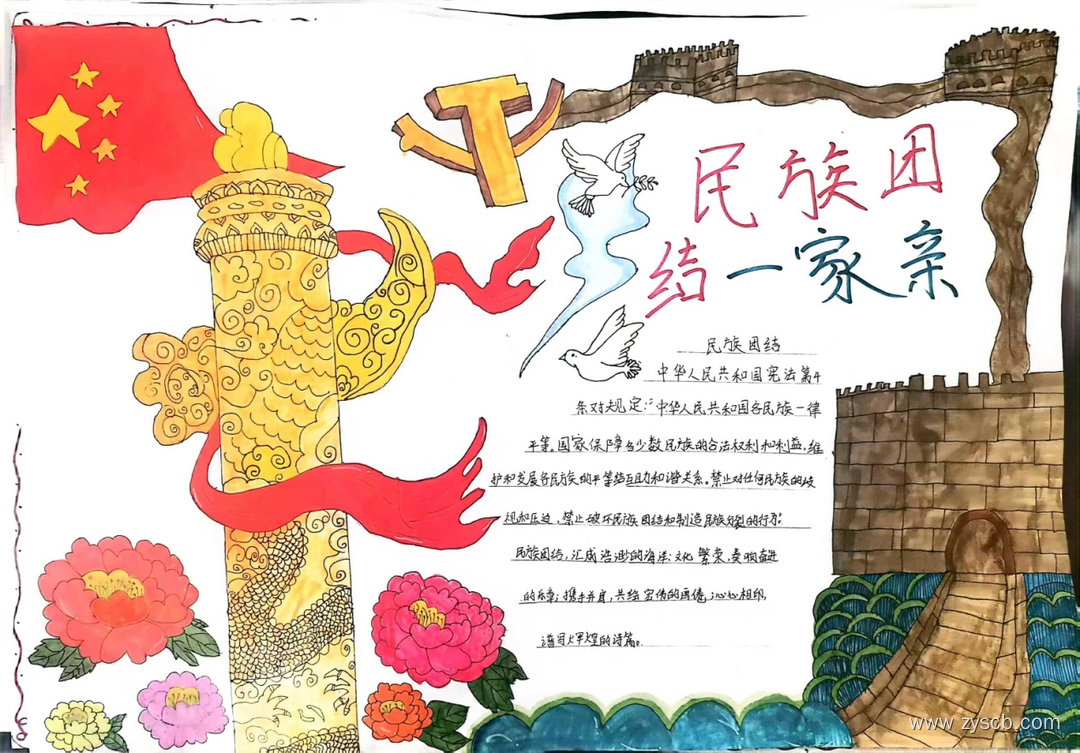 民族团
结一家亲
民族团结
中华人民共和国宪法第4
条对规定:“中华人民共和国各民族一律
平等。国家保障各少数民族的合法权利和利益,维
护和发展各民族的平等结互助和谐关系。禁止对任何民族的歧
视和压迫,禁止破坏民族团结和制造民族分裂的行
民族团结,汇成浩渺的海洋;文化繁荣,奏响奋进
的乐章;携手并肩,共绘宏伟的画卷,心心相印,
谱写辉煌的诗篇。
www.zyscb.com